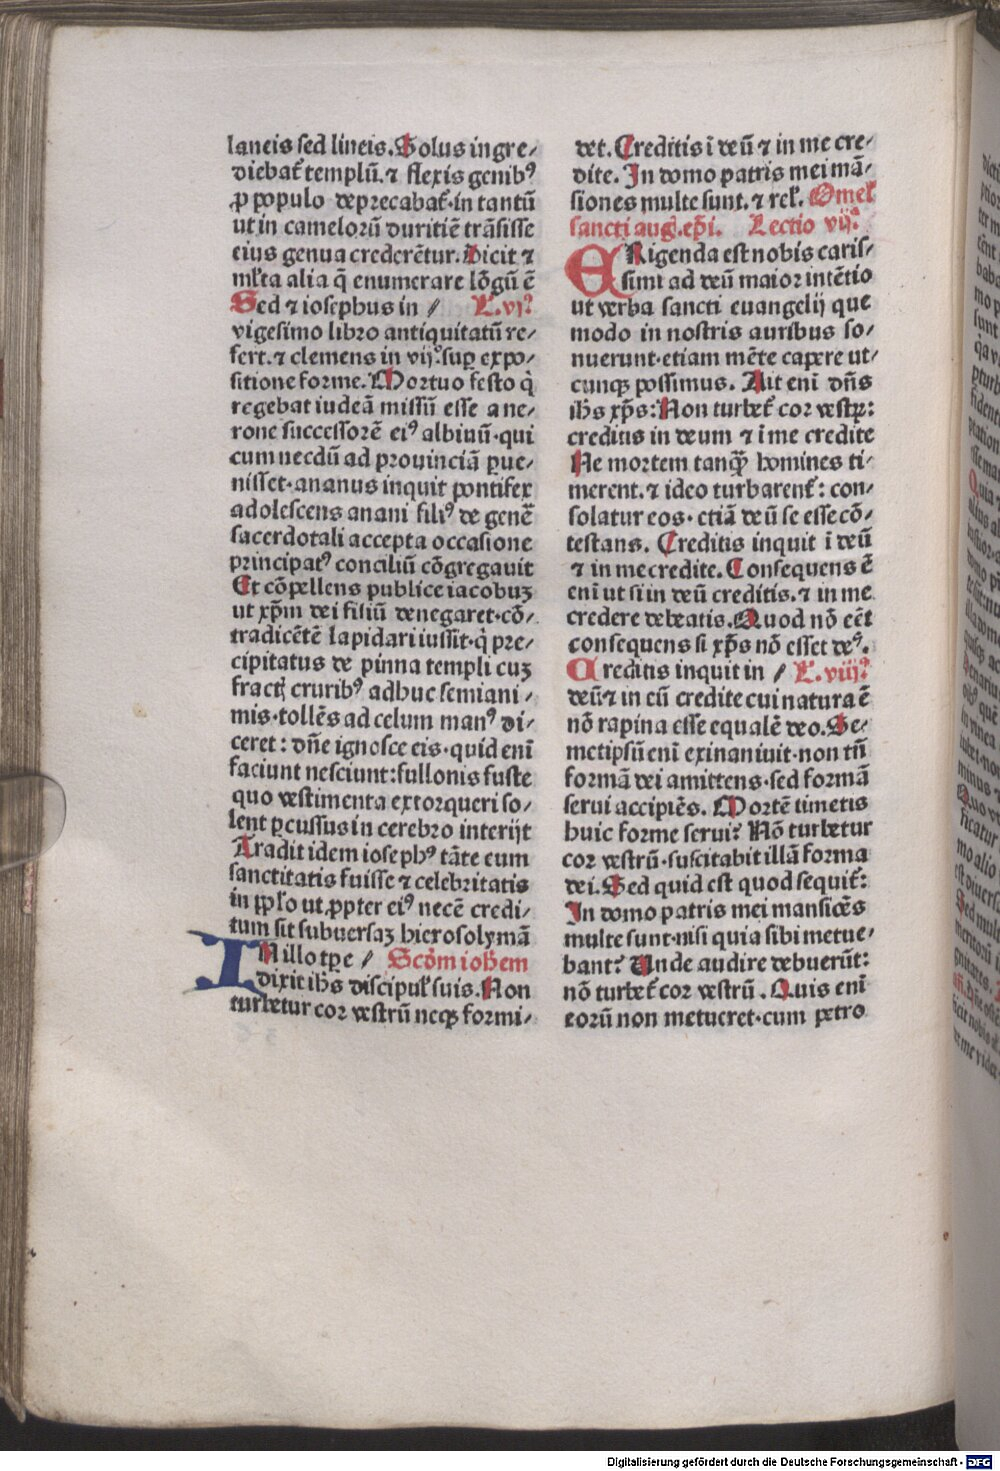 laneis sed lineis. Solus ingre⸗
diebat᷑ templū. ⁊ flexis genibꝰ
ꝓ populo deprecabat᷑. in tantū
ut in camelorū duritiē trāsisse
eius genua crederētur. Dicit ⁊
ml̕ta alia q̄ enumerare lōgū ē
Sed ⁊ iosephus in // L. vi.ͣ
vigesimo libro antiquitatū re⸗
fert. ⁊ clemens in vij.ͦ suꝑ expo⸗
sitione forme. Mortuo festo q̇
regebat iudeā missū esse a ne⸗
rone successorē eiꝰ albinū. qui
cum necdū ad prouinciā ꝑue⸗
nisset. ananus inquit pontifex
adolescens anani filiꝰ de genē
sacerdotali accepta occasione
principatꝰ conciliū cōgregauit
Et cōpellens publice iacobuꝫ
ut xp̄m dei filiū denegaret. cō⸗
tradicētē lapidari iussit. q̇ pre⸗
cipitatus de pinna templi cuꝫ
fractꝭ cruribꝰ adhuc semiani⸗
mis. tollēs ad celum manꝰ di⸗
ceret: dn̄e ignosce eis. quid enī
faciunt nesciunt: fullonis fuste
quo vestimenta extorqueri so⸗
lent ꝑcussus in cerebro interijt
Tradit idem iosephꝰ tāte eum
sanctitatis fuisse ⁊ celebritatis
in ppl̕o ut ꝓpter eiꝰ necē credi⸗
tum sit subuersaꝫ hierosolymā
IN illo tꝑe // Scd̄m ioh̄em
dixit ih̄s discipul̕ suis. Non
turbetur cor vestrū neqꝫ formi⸗
det. Creditis ī deū ⁊ in me cre⸗
dite. In domo patris mei mā⸗
siones multe sunt. ⁊ rel̕. Omel̕
sancti aug. ep̄i. Lectio vij.ͣ
ERigenda est nobis caris⸗
simi ad deū maior intētio
ut verba sancti euangelij que
modo in nostris auribus so⸗
nuerunt. etiam mēte capere ut⸗
cunqꝫ possimus. Ait enī dn̄s
ih̄s xp̄s: Non turbet᷑ cor vestꝝ:
creditis in deum ⁊ ī me credite
Ne mortem tanqꝫ̄ homines ti⸗
merent. ⁊ ideo turbarent᷑: con⸗
solatur eos. etiā deū se esse cō⸗
testans. Creditis inquit ī deū
⁊ in me credite. Consequens ē
enī ut si in deū creditis. ⁊ in me
credere debeatis. Quod nō eēt
consequens si xp̄s nō esset deꝰ.
Creditis inquit in // L. viij.ͣ
deū ⁊ in eū credite cui natura ē
nō rapina esse equalē deo. Se⸗
metipsū enī exinaniuit. non tn̄
formā dei amittens. sed formā
serui accipiēs. Mortē timetis
huic forme serui? Nō turbetur
cor vestrū. suscitabit illā forma
dei. Sed quid est quod sequit᷑:
In domo patris mei mansiōes
multe sunt. nisi quia sibi metue⸗
bant? Unde audire debuerūt:
nō turbet᷑ cor vestrū. Quis enī
eorū non metueret. cum petro
Digitalisierung gefördert durch die Deutsche Forschungsgemeinschaft - DFG